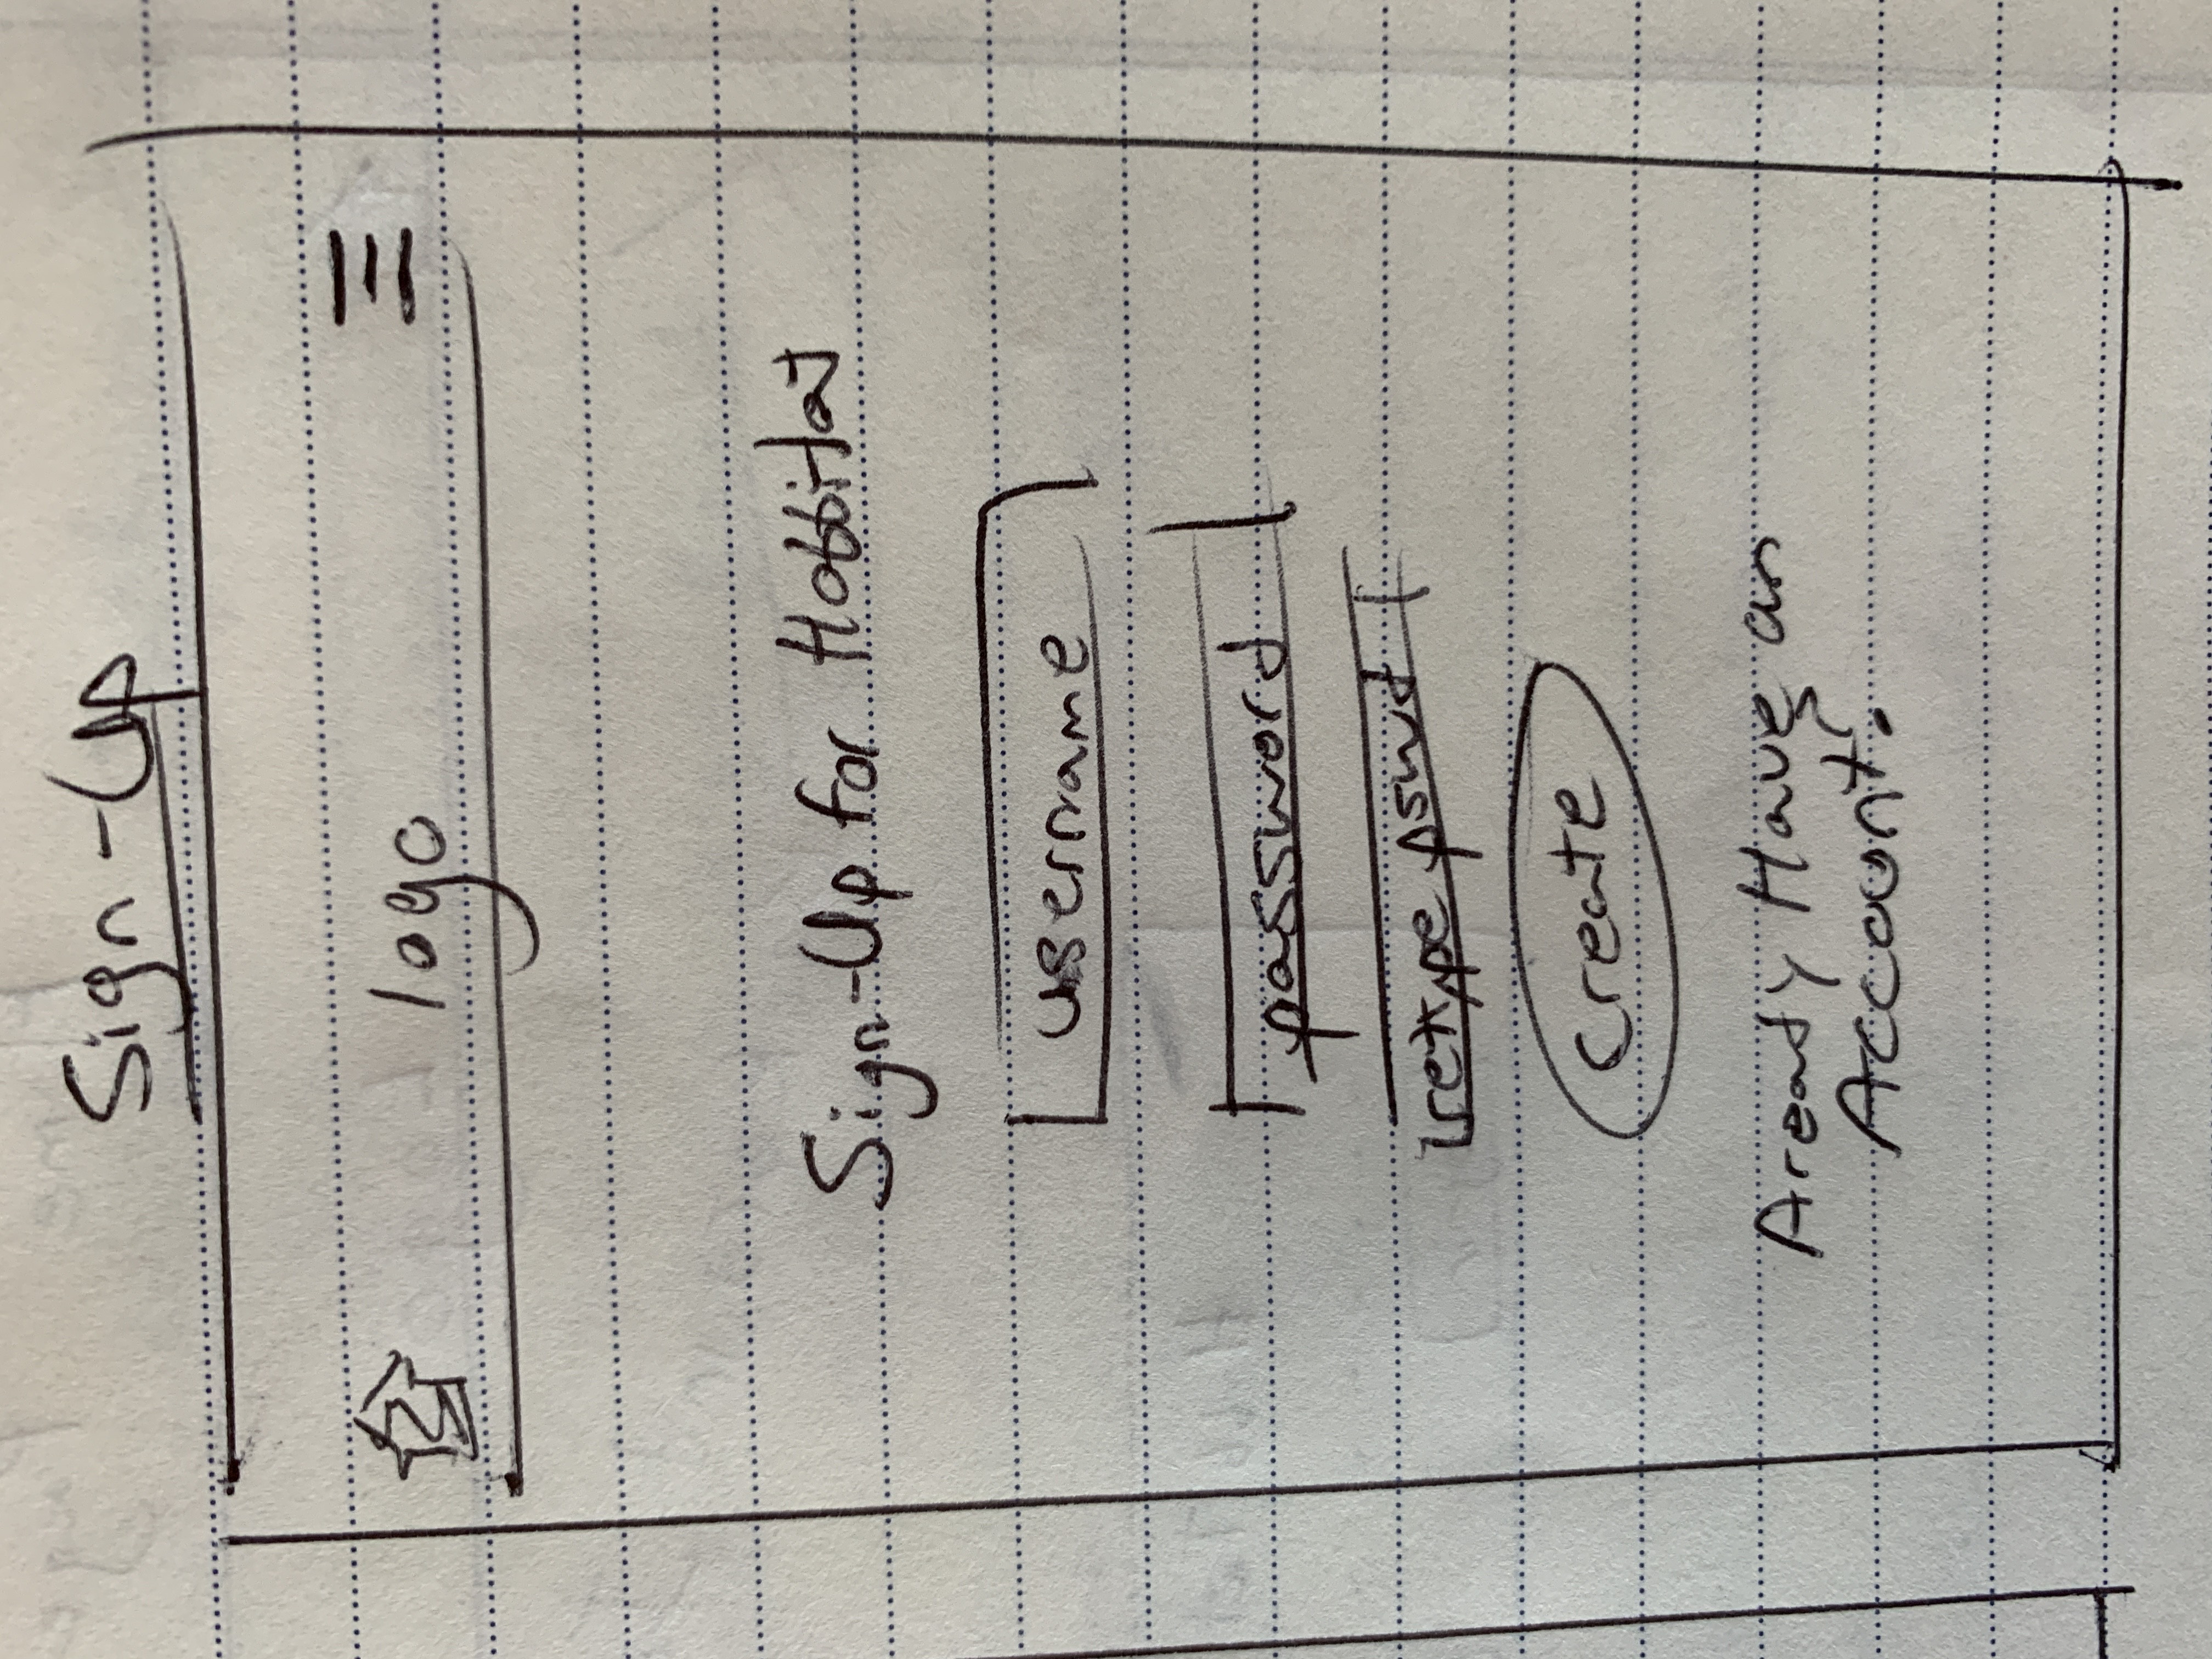 Sign-Up
logo
Sign-Up for Hobbitat
username
password
retype pswd
create
Aready Have an
Account?